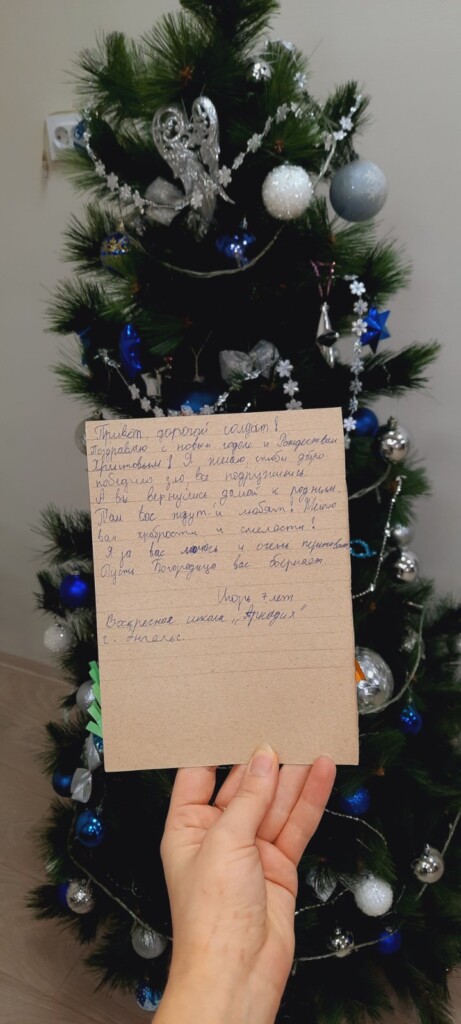 Привет, дорогой солдат!
Поздравляю с новым годом и Рождеством
Христовым! Я желаю, чтобы добро
победило зло все подружились.
А вы вернулись домой к родным.
Там вас ждут и любят! Желаю
вам храбрости и смелости!
Я за вас молюсь и очень переживаю
Пусть Богородица вас оберегает.
Игорь 7 лет
Воскресная школа "Аркадия"
г. Энгельс.